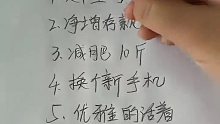 2.净增存款
3.减肥10斤
4.换个新手机
5.优雅的活着